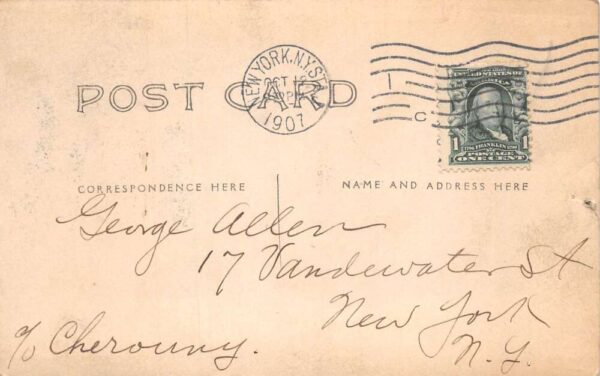 POST CARD
NEW YORK, N.Y. STA.
OCT
1907
1
C
UNITED STATES OF AMERICA
1 1
FRANKLIN
POSTAGE
ONE CENT
CORRESPONDENCE HERE
NAME AND ADDRESS HERE
George Allen
17 Vandewater St
New York
N.Y.
c/o Cherouny.